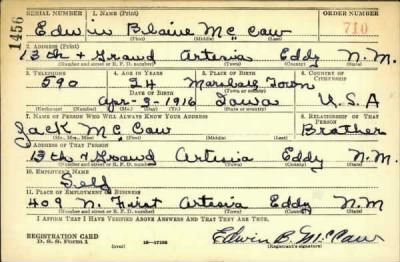 SERIAL NUMBER 1. NAME (Print) ORDER NUMBER
1456 Edwin Blaine McCaw 710
(First) (Middle) (Last)
2. ADDRESS (Print)
13th & Grand Artesia Eddy N.M.
(Number and street or R. F. D. number) (Town) (County) (State)
3. TELEPHONE 4. AGE IN YEARS 5. PLACE OF BIRTH 6. COUNTRY OF CITIZENSHIP
590 24 Marshall Town
DATE OF BIRTH (Town or county)
Apr-3-1916 Iowa U.S.A
(Exchange) (Number) (Mo.) (Day) (Yr.) (State or country)
7. NAME OF PERSON WHO WILL ALWAYS KNOW YOUR ADDRESS 8. RELATIONSHIP OF THAT PERSON
Jack McCaw Brother
(Mr., Mrs., Miss) (First) (Middle) (Last)
9. ADDRESS OF THAT PERSON
13th & Grand Artesia Eddy N.M.
(Number and street or R. F. D. number) (Town) (County) (State)
10. EMPLOYER'S NAME
Self
11. PLACE OF EMPLOYMENT OR BUSINESS
409 N. First Artesia Eddy N.M
(Number and street or R. F. D. number) (Town) (County) (State)
I AFFIRM THAT I HAVE VERIFIED ABOVE ANSWERS AND THAT THEY ARE TRUE.
REGISTRATION CARD
D. S. S. Form 1 (over) 16-17105 Edwin B. McCaw
(Registrant's signature)